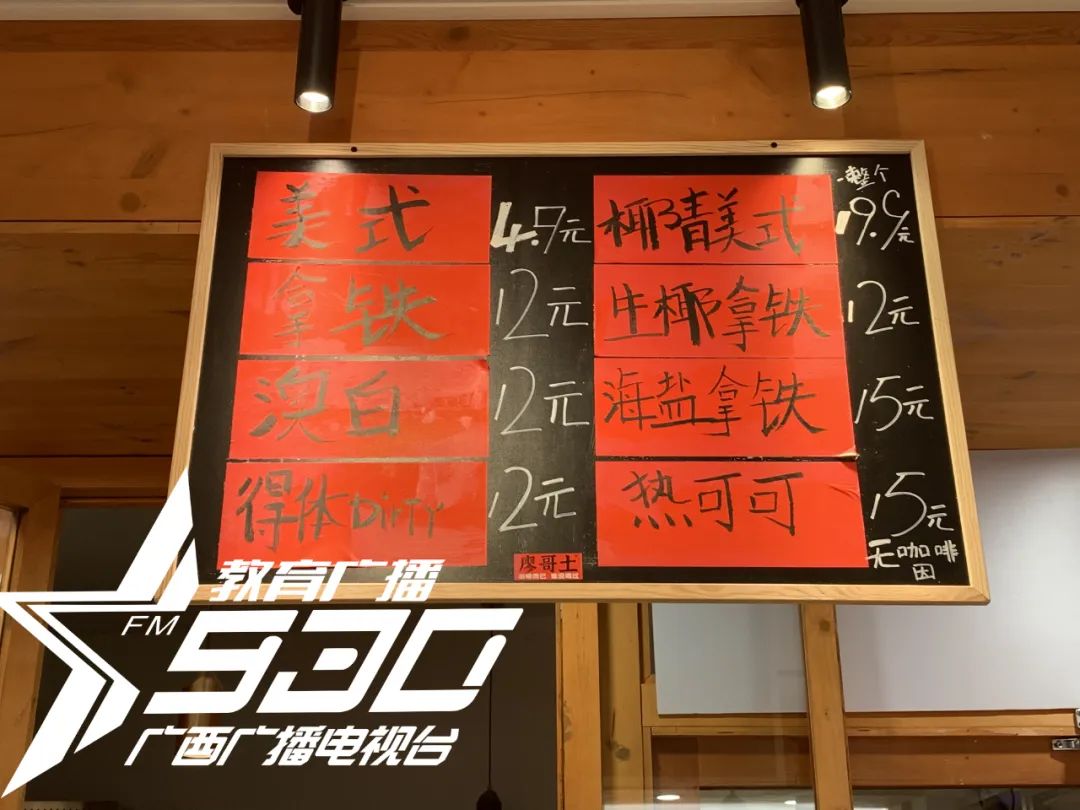 美式 4.9元
拿铁 12元
澳白 12元
得体Dirty 12元
一整个
椰青美式 19.9/元
生椰拿铁 12元
海盐拿铁 15元
热可可 15元
无咖啡因
廖哥士
教育广播
FM 930
广西广播电视台